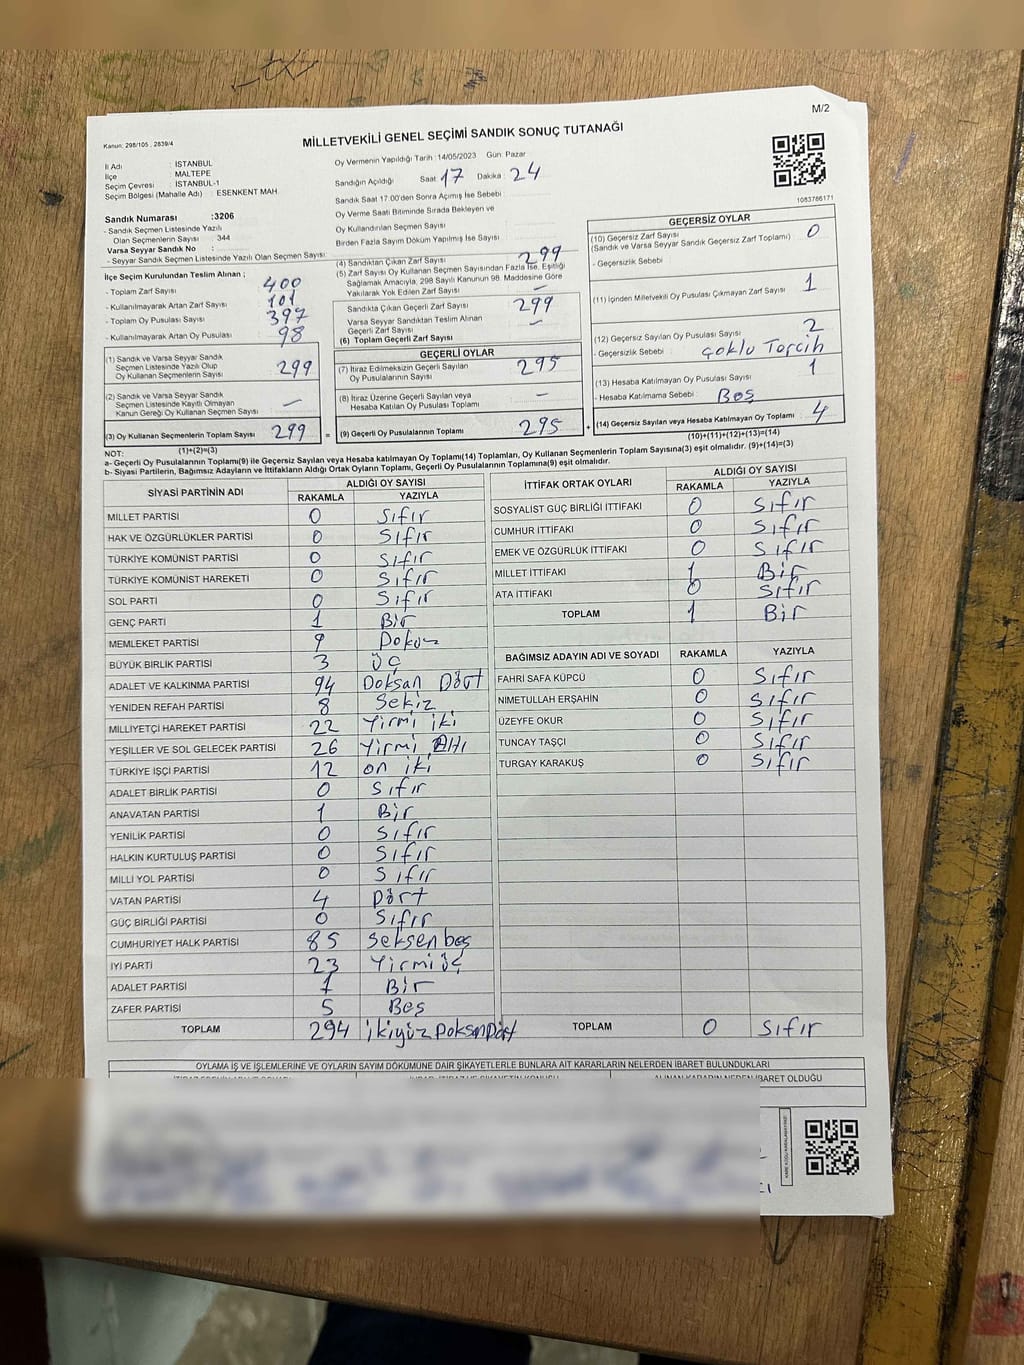 M/2
Kanun: 298/105 , 2839/4
MİLLETVEKİLİ GENEL SEÇİMİ SANDIK SONUÇ TUTANAĞI
1083786171
İl Adı : İSTANBUL
İlçe : MALTEPE
Seçim Çevresi : İSTANBUL-1
Seçim Bölgesi (Mahalle Adı) : ESENKENT MAH.
Sandık Numarası :3206
- Sandık Seçmen Listesinde Yazılı
Olan Seçmenlerin Sayısı : 344
Varsa Seyyar Sandık No :
- Seyyar Sandık Seçmen Listesinde Yazılı Olan Seçmen Sayısı:
Oy Vermenin Yapıldığı Tarih :14/05/2023 Gün: Pazar
Sandığın Açıldığı Saat 17 Dakika 24
Sandık Saat 17:00'den Sonra Açımış İse Sebebi
Oy Verme Saati Bitiminde Sırada Bekleyen ve
Oy Kullandırılan Seçmen Sayısı
Birden Fazla Sayım Döküm Yapılmış İse Sayısı
İlçe Seçim Kurulundan Teslim Alınan ;
- Toplam Zarf Sayısı 400
- Kullanılmayarak Artan Zarf Sayısı 101
- Toplam Oy Pusulası Sayısı 397
- Kullanılmayarak Artan Oy Pusulası 98
(1) Sandık ve Varsa Seyyar Sandık
Seçmen Listesinde Yazılı Olup
Oy Kullanan Seçmenlerin Sayısı 299
(2) Sandık ve Varsa Seyyar Sandık
Seçmen Listesinde Kayıtlı Olmayan
Kanun Gereği Oy Kullanan Seçmen Sayısı –
(3) Oy Kullanan Seçmenlerin Toplam Sayısı 299
(1)+(2)=(3)
(4) Sandıktan Çıkan Zarf Sayısı 299
(5) Zarf Sayısı Oy Kullanan Seçmen Sayısından Fazla İse, Eşitliği
Sağlamak Amacıyla, 298 Sayılı Kanunun 98. Maddesine Göre
Yakılarak Yok Edilen Zarf Sayısı –
Sandıkta Çıkan Geçerli Zarf Sayısı 299
Varsa Seyyar Sandıktan Teslim Alınan
Geçerli Zarf Sayısı –
(6) Toplam Geçerli Zarf Sayısı
GEÇERLİ OYLAR
(7) İtiraz Edilmeksizin Geçerli Sayılan
Oy Pusulalarının Sayısı 295
(8) İtiraz Üzerine Geçerli Sayılan veya
Hesaba Katılan Oy Pusulası Toplamı –
= (9) Geçerli Oy Pusulalarının Toplamı 295
GEÇERSİZ OYLAR
(10) Geçersiz Zarf Sayısı 0
(Sandık ve Varsa Seyyar Sandık Geçersiz Zarf Toplamı)
- Geçersizlik Sebebi
(11) İçinden Milletvekili Oy Pusulası Çıkmayan Zarf Sayısı 1
(12) Geçersiz Sayılan Oy Pusulası Sayısı 2
- Geçersizlik Sebebi : çoklu Tercih
(13) Hesaba Katılmayan Oy Pusulası Sayısı 1
- Hesaba Katılmama Sebebi : Boş
+ (14) Geçersiz Sayılan veya Hesaba Katılmayan Oy Toplamı 4
(10)+(11)+(12)+(13)=(14)
NOT:
a- Geçerli Oy Pusulalarının Toplamı(9) ile Geçersiz Sayılan veya Hesaba Katılmayan Oy Toplamı(14) Toplamları, Oy Kullanan Seçmenlerin Toplam Sayısına(3) eşit olmalıdır. (9)+(14)=(3)
b- Siyasi Partilerin, Bağımsız Adayların ve İttifakların Aldığı Ortak Oyların Toplamı, Geçerli Oy Pusulalarının Toplamına(9) eşit olmalıdır.
SİYASİ PARTİNİN ADI ALDIĞI OY SAYISI
RAKAMLA YAZIYLA
MİLLET PARTİSİ 0 Sıfır
HAK VE ÖZGÜRLÜKLER PARTİSİ 0 Sıfır
TÜRKİYE KOMÜNİST PARTİSİ 0 Sıfır
TÜRKİYE KOMÜNİST HAREKETİ 0 Sıfır
SOL PARTİ 0 Sıfır
GENÇ PARTİ 1 Bir
MEMLEKET PARTİSİ 9 Dokuz
BÜYÜK BİRLİK PARTİSİ 3 üç
ADALET VE KALKINMA PARTİSİ 94 Doksan Dört
YENİDEN REFAH PARTİSİ 8 Sekiz
MİLLİYETÇİ HAREKET PARTİSİ 22 Yirmi iki
YEŞİLLER VE SOL GELECEK PARTİSİ 26 Yirmi Altı
TÜRKİYE İŞÇİ PARTİSİ 12 on iki
ADALET BİRLİK PARTİSİ 0 Sıfır
ANAVATAN PARTİSİ 1 Bir
YENİLİK PARTİSİ 0 Sıfır
HALKIN KURTULUŞ PARTİSİ 0 Sıfır
MİLLİ YOL PARTİSİ 0 Sıfır
VATAN PARTİSİ 4 Dört
GÜÇ BİRLİĞİ PARTİSİ 0 Sıfır
CUMHURİYET HALK PARTİSİ 85 Seksen beş
İYİ PARTİ 23 Yirmi üç
ADALET PARTİSİ 1 Bir
ZAFER PARTİSİ 5 Beş
TOPLAM 294 ikiyüz Doksan Dört
İTTİFAK ORTAK OYLARI ALDIĞI OY SAYISI
RAKAMLA YAZIYLA
SOSYALİST GÜÇ BİRLİĞİ İTTİFAKI 0 Sıfır
CUMHUR İTTİFAKI 0 Sıfır
EMEK VE ÖZGÜRLÜK İTTİFAKI 0 Sıfır
MİLLET İTTİFAKI 1 Bir
ATA İTTİFAKI 0 Sıfır
TOPLAM 1 Bir
BAĞIMSIZ ADAYIN ADI VE SOYADI RAKAMLA YAZIYLA
FAHRİ SAFA KÜPCÜ 0 Sıfır
NİMETULLAH ERŞAHİN 0 Sıfır
ÜZEYFE OKUR 0 Sıfır
TUNCAY TAŞÇI 0 Sıfır
TURGAY KARAKUŞ 0 Sıfır
TOPLAM 0 Sıfır
OYLAMA İŞ VE İŞLEMLERİNE VE OYLARIN SAYIM DÖKÜMÜNE DAİR ŞİKAYETLERLE BUNLARA AİT KARARLARIN NELERDEN İBARET BULUNDUKLARI
ALINAN KARARIN NEDEN İBARET OLDUĞU